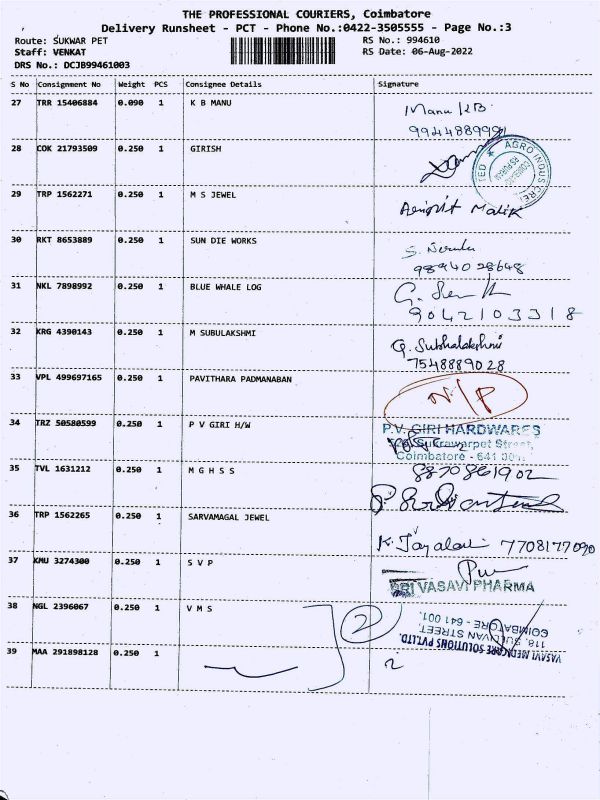 THE PROFESSIONAL COURIERS, Coimbatore
Delivery Runsheet - PCT - Phone No.:0422-3505555 - Page No.:3
Route: SUKWAR PET
RS No.: 994610
Staff: VENKAT
RS Date: 06-Aug-2022
DRS No.: DCJB99461003
S No Consignment No Weight PCS Consignee Details Signature
27 TRR 15406884 0.090 1 K B MANU Manu KB
28 COK 21793509 0.250 1 GIRISH
AGRO INDUS
29 TRP 1562271 0.250 1 M S JEWEL
Malik
30 RKT 8653889 0.250 1 SUN DIE WORKS
9894028648
31 NKL 7898992 0.250 1 BLUE WHALE LOG
9042103318
32 KRG 4390143 0.250 1 M SUBULAKSHMI
G. Subhalakshmi
7548889028
33 VPL 499697165 0.250 1 PAVITHARA PADMANABAN
N/P
34 TRZ 50580599 0.250 1 P V GIRI H/W
P.V. GIRI HARDWARES
Sukrawarpet Street,
Coimbatore - 641 001.
35 TVL 1631212 0.250 1 M G H S S
8870861902
36 TRP 1562265 0.250 1 SARVAMAGAL JEWEL
K. Jayalaxmi 7708177090
37 KMU 3274300 0.250 1 S V P
SRI VASAVI PHARMA
38 NGL 2396067 0.250 1 V M S
2
VASAVI MEDICARE SOLUTIONS PVT.LTD.
118, SULLIVAN STREET,
COIMBATORE - 641 001.
39 MAA 291898128 0.250 1